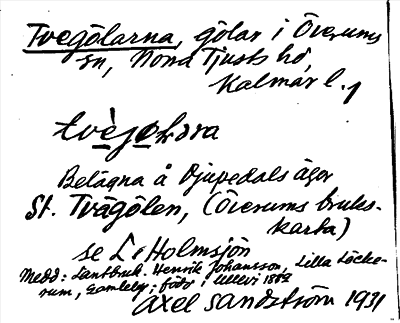 Tvegölarna, gölar i Överums
sn, Norra Tjusts hd,
Kalmar l.,
Belägna å Djupedals ägor
St. Tvägölen, (Överums bruks-
karta)
se L. Holmsjön
Medd: Lantbruk. Henrik Johansson, Lilla Löcke-
rum, Gamleby; född i Ukevi
Axel Sandström 1931